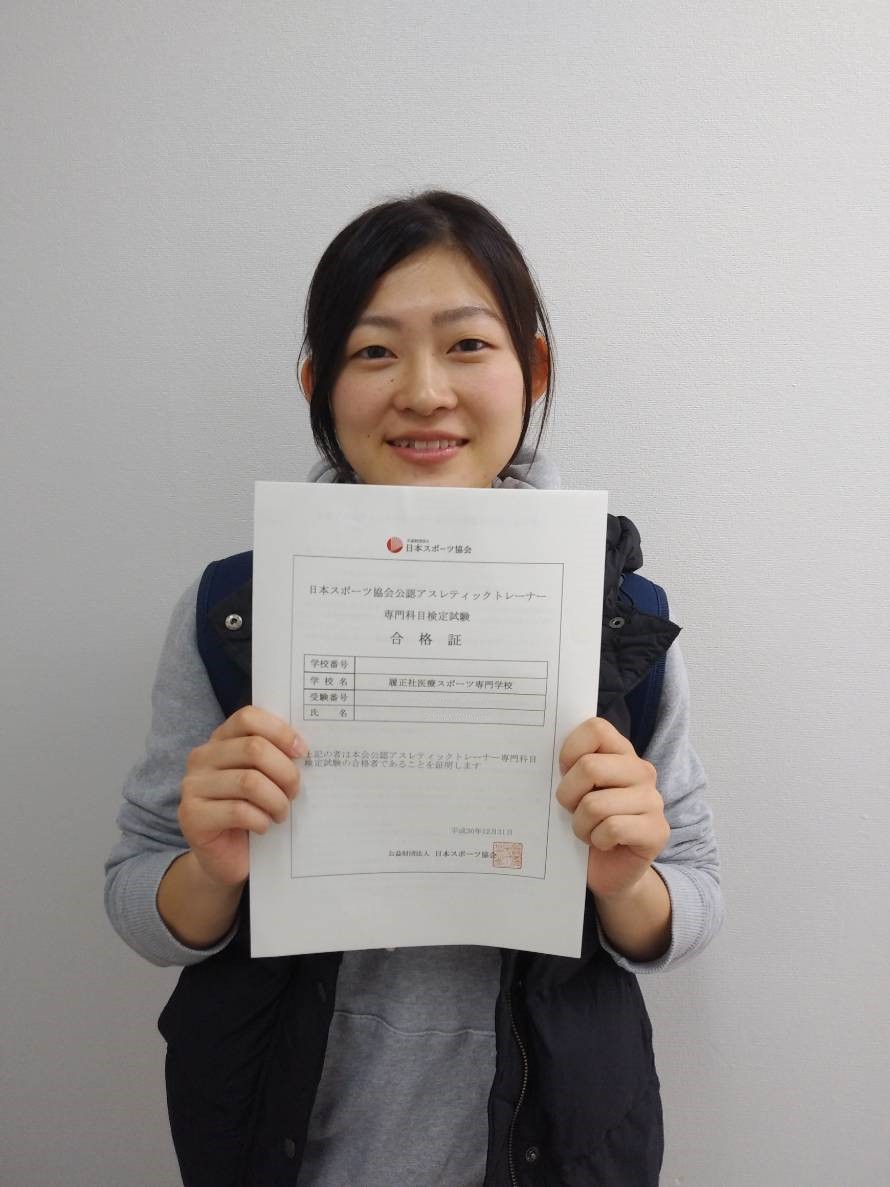 公益財団法人
日本スポーツ協会
日本スポーツ協会公認アスレティックトレーナー
専門科目検定試験
合格証
学校番号
学校名 履正社医療スポーツ専門学校
受験番号
氏名
上記の者は本会公認アスレティックトレーナー専門科目
検定試験の合格者であることを証明します
平成30年12月31日
公益財団法人 日本スポーツ協会